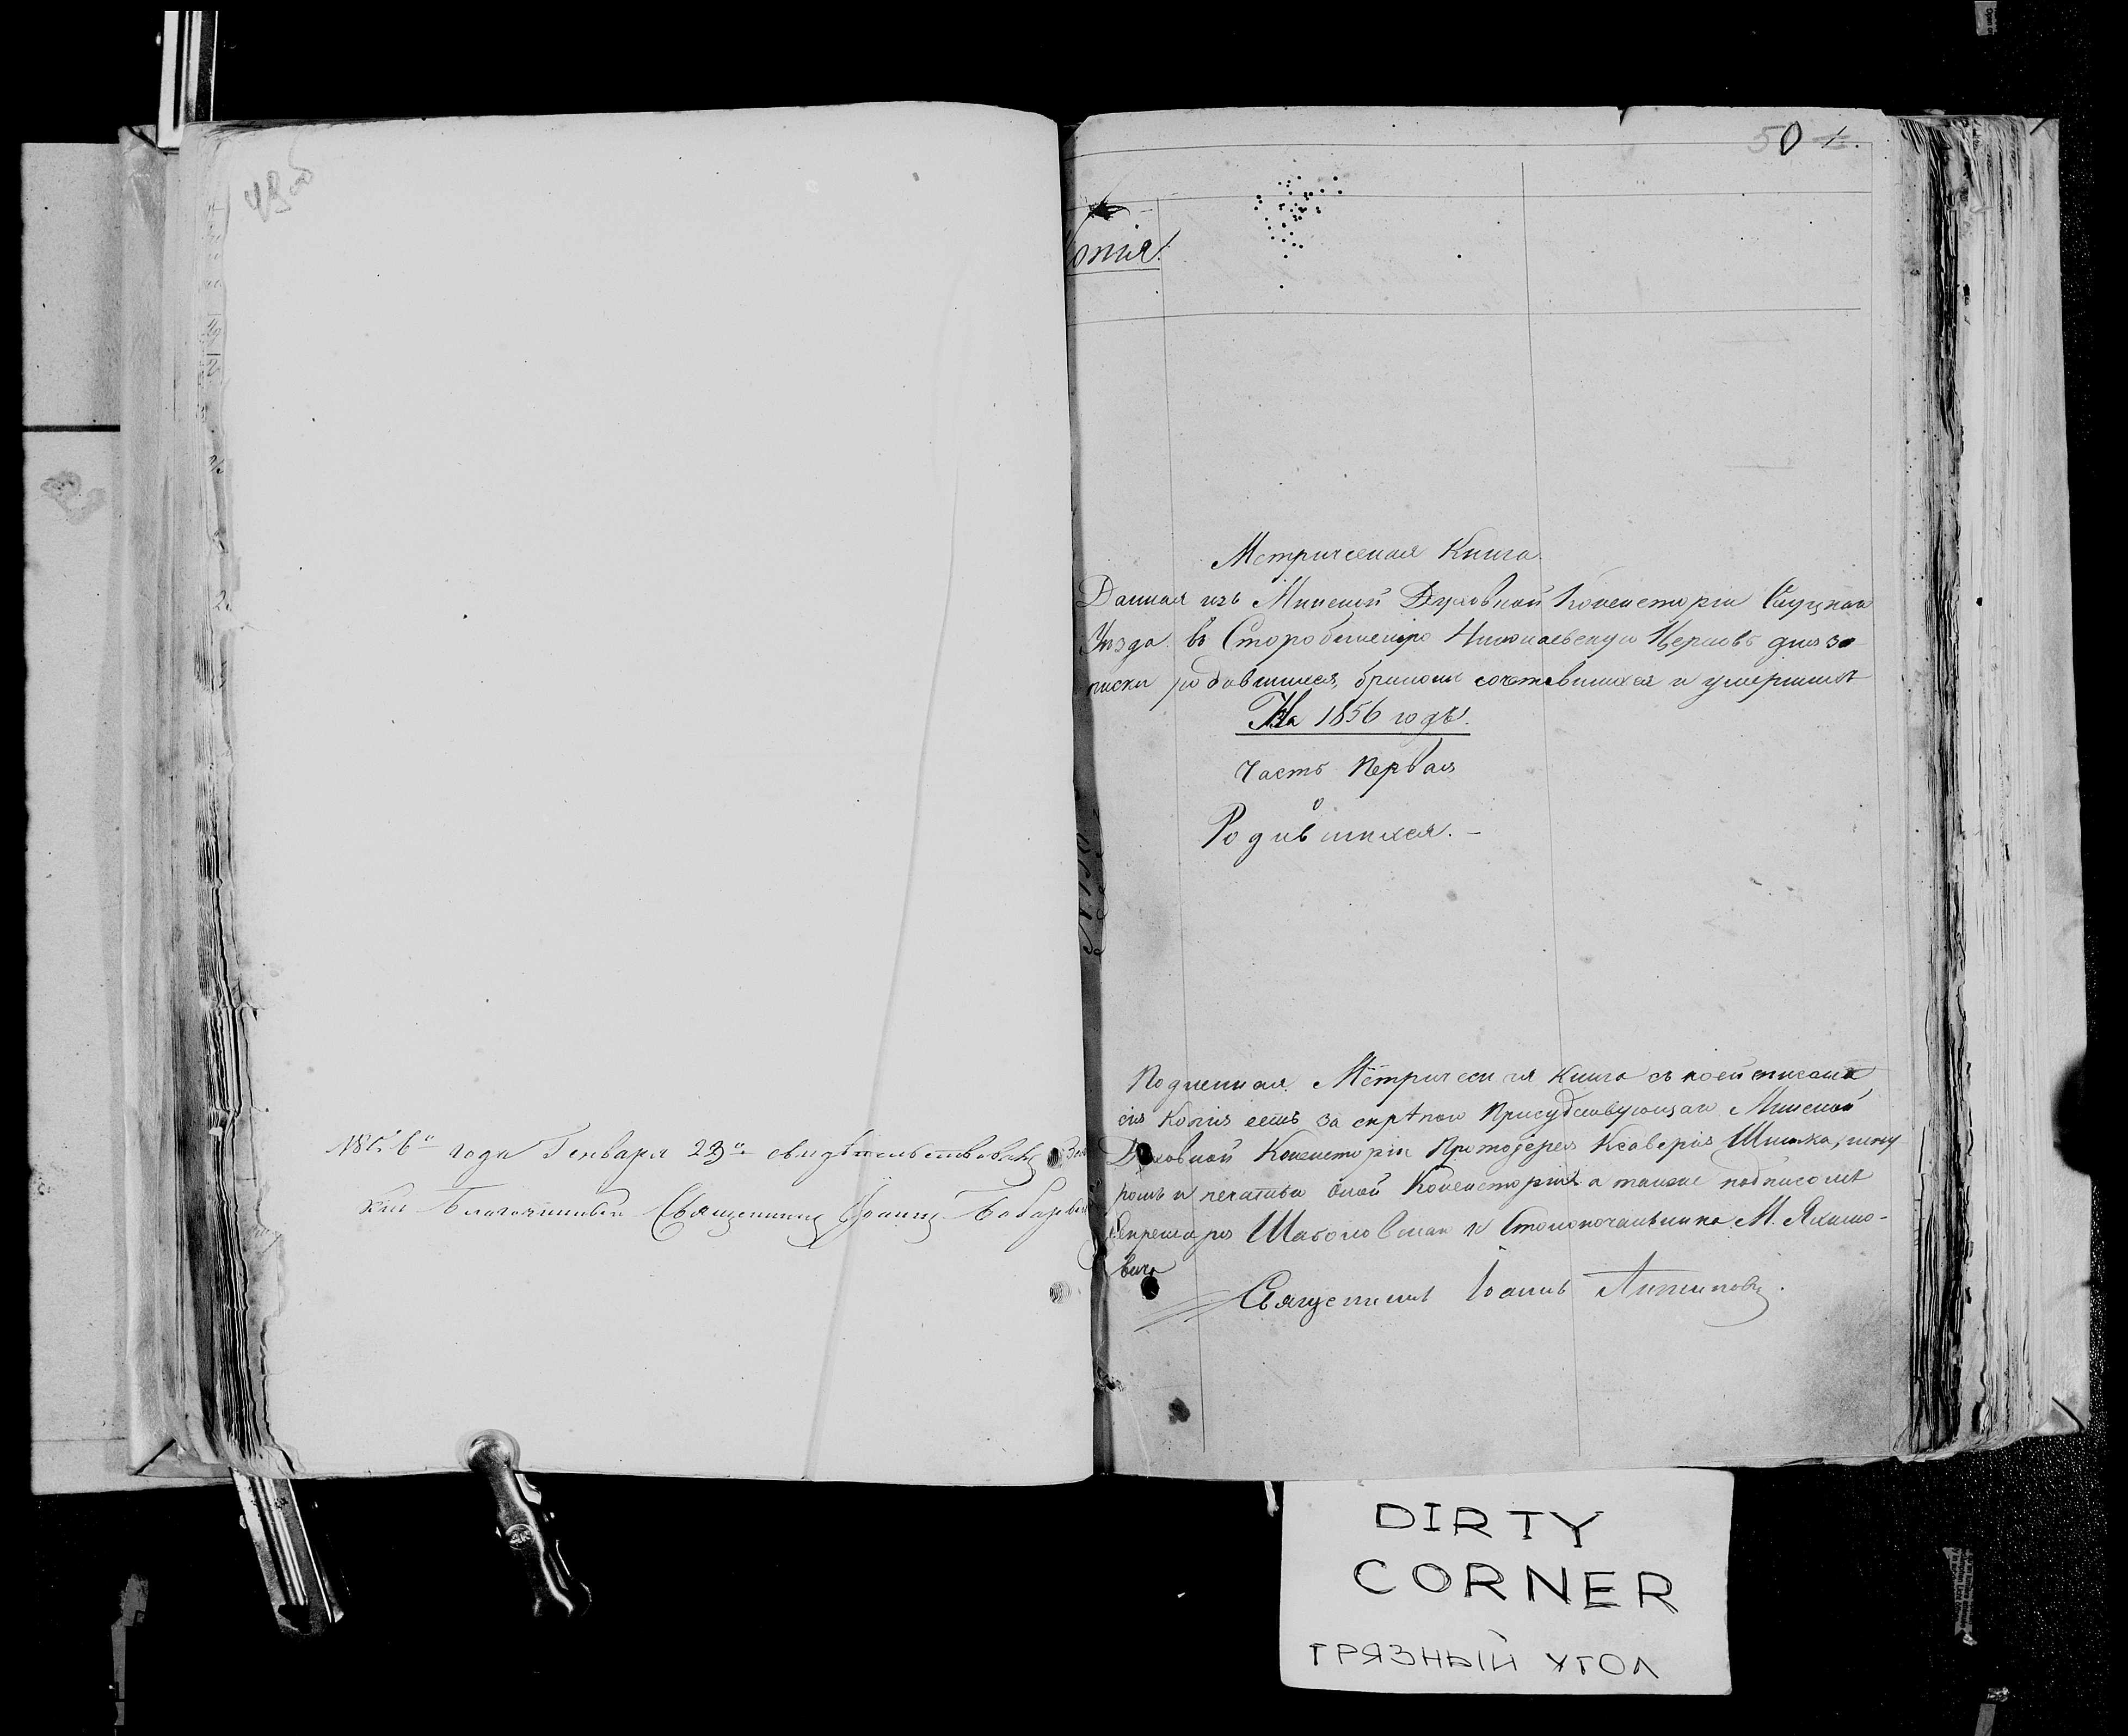 49об
1856го года Генваря 23го свидѣтельствовалъ
Благочинный Священникъ Іоаннъ
50
Копія
Метрическая Книга
Данная изъ Минской Духовной Консисторіи Слуцкаго
Уѣзда въ Старобинскую Николаевскую Церковь для за
писки родившихся, бракомъ сочетавшихся и умершихъ
На 1856 годъ.
Часть Первая
О
Родившихся.
Подленная Метрическая Книга съ коей списана
сія Копія есть за скрѣпою Присудствующаго Минской
Духовной Консисторіи Протоіерея Ксаверія шну
ромъ и печатью оной Консисторіи а также подписомъ
Секретаря и Столоначальника М. Яхимо-
вича
Священникъ Іоаннъ
DIRTY
CORNER
ГРЯЗНЫЙ УГОЛ